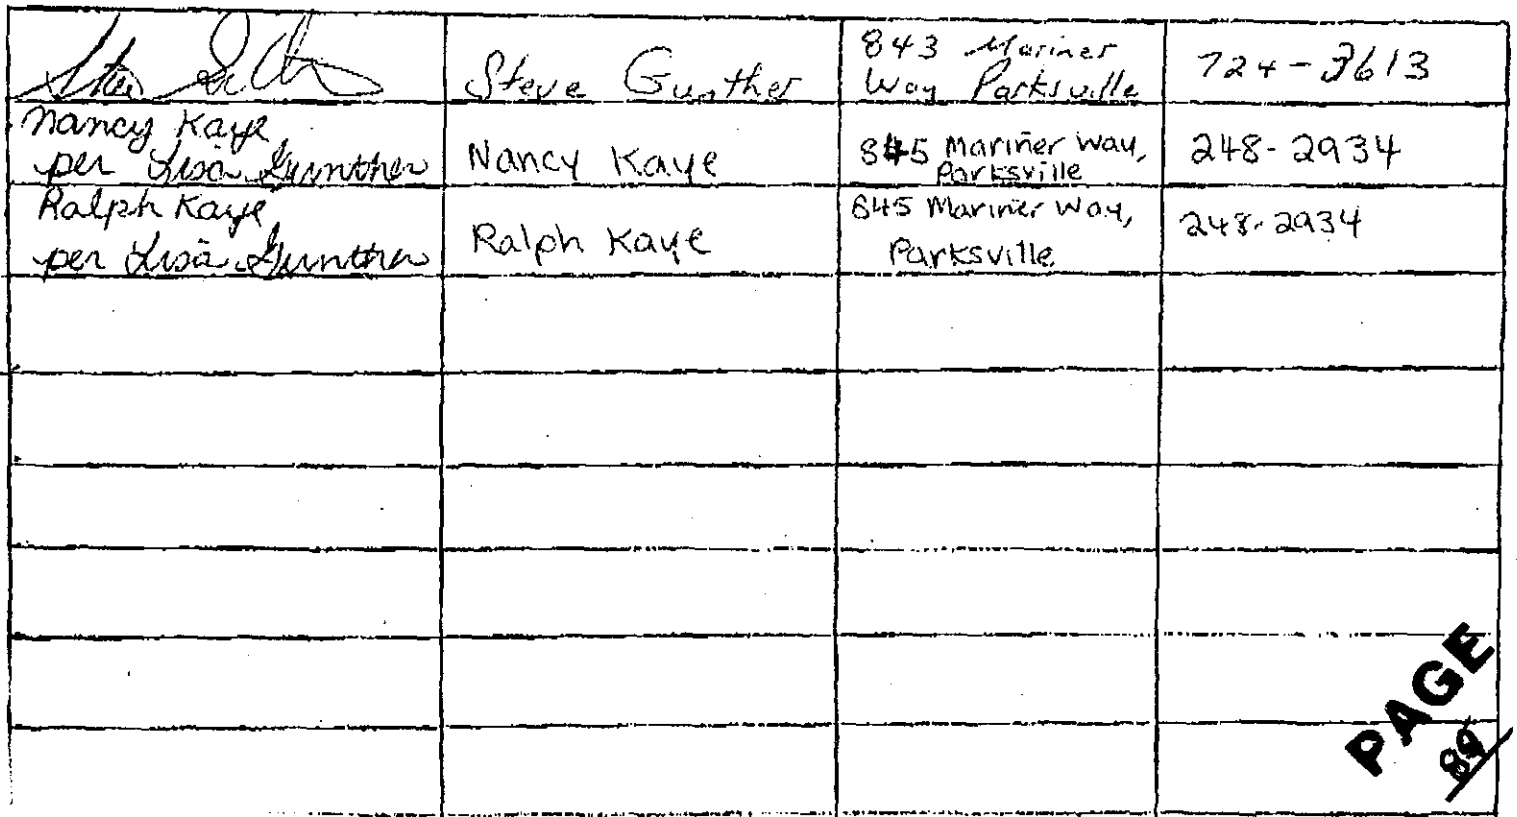 Steve Gunther
843 Mariner
Way Parksville
724-3613
Nancy Kaye
per Lisa Gunther
Nancy Kaye
845 Mariner Way,
Parksville
248-2934
Ralph Kaye
per Lisa Gunther
Ralph Kaye
845 Mariner Way,
Parksville
248-2934
PAGE
89